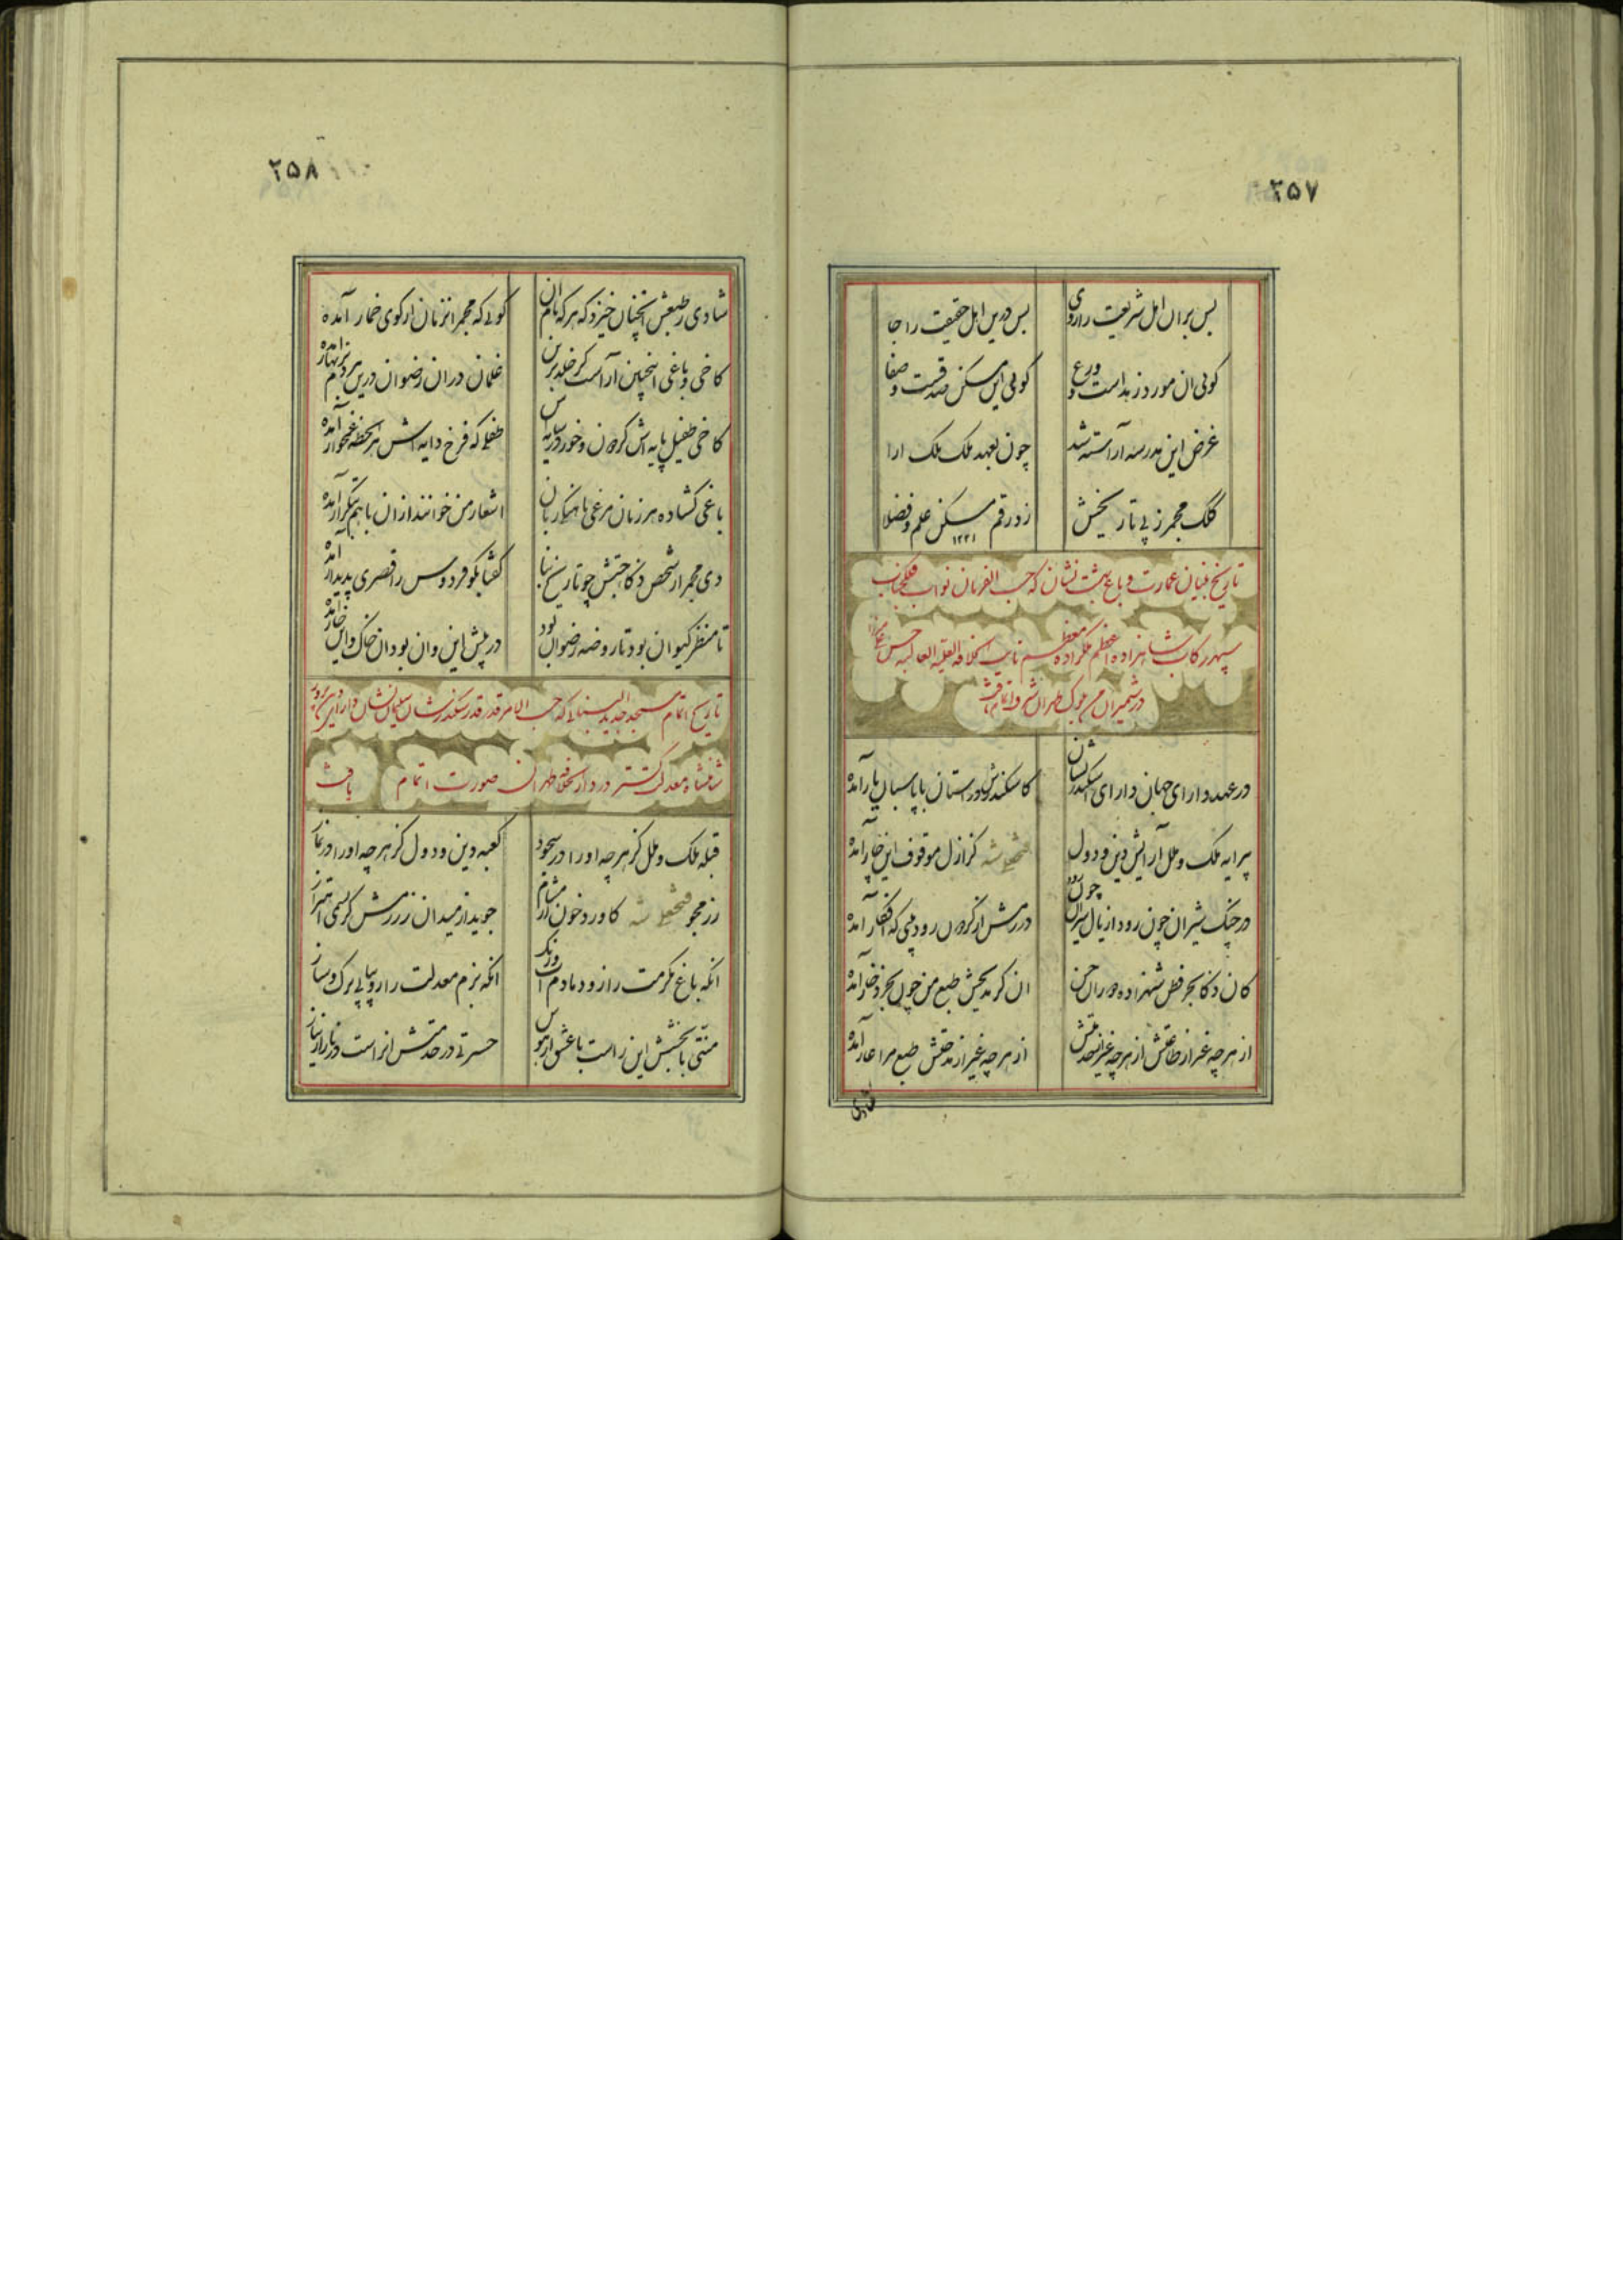 ۲۵۷
بس بران اهل شریعت را روی بس درین اهل حقیقت را جا
کوئی ان مورد زهد است و ورع کوئی این مسکن صدقست و صفا
غرض این مدرسه آراسته شد چون بعهد ملک ملک ارا
کلک مجمر ز پی تاریخش زد رقم مسکن علم و فضلا
۱۲۲۱
تاریخ بنیان عمارت و باغ بهشت نشان که حسب الفرمان نواب فلکجناب
سپهر رکاب شاهزاده اعظم ملکزاده معظم نایب الخلافه العلیه العالیه حسن
در شمیران من طهران شرف اتمام یافت
در عهد دارای جهان دارای اسکندر نشان کاسکندرش در استان با پاسبان یار آمده
پیرایه ملک و ملل آرایش دین و دول فتحعلی شه کز ازل موقوف این آمده
در چنک شیران چون رود از یال شیران چون در رزمش از کردن رود پیلی که افکار آمده
کان ذکا بحر فطن شهزاده دوران حسن ان کز مدیحش طبع من چون بحر ذخار آمده
از هر چه غیر از طاعتش از هر چه غیر از خدمتش از هر چه غیر از مدحتش طبع مرا عار آمده
شادی
۲۵۸
شادی ز طبعش انچنان خیزد که هر که نام ان کوئی که مجمر انزمان از کوی خمار آمده
کاخی و باغی اینچنین آراست کز خلد برین غلمان دران رضوان درین آمده
کاخی طفیل پایه اش کردون و خور در سایه اش طفلی که فرخ دایه اش هر لحظه غمخوار آمده
باغی کشاده هر زمان مرغی زبان اشعار من خوانند ازان باهم بتکرار آمده
دی مجمر از شخص ذکا جستش چو تاریخ بنا کفتا بکو فردوس را قصری پدیدار آمده
تا منظر کیوان بود تا روضه رضوان بود در پیش این وان بود ان خاک و این خار آمده
تاریخ اتمام مسجد جدید البنا که حسب الامر قدر قدر سکندر شان سلیمان نشان دارای
شاهنشاه معدلت کستر در دار الخلافه طهران صورت اتمام یافت
قبله ملک و ملل کز هر چه او را در سجود کعبه دین و دول کز هر چه اورا در نماز
رزمجو فتحعلی شه کاورد خون در مشام جوید از میدان رزمش کر نسیمی اهتزاز
انکه باغ مکرمت را زو دمادم اب و رنک انکه بزم معدلت را زو پیاپی برک و ساز
منتی با بخشش این راست با عشق از حسرتی در خدمتش انراست در ناز از نیاز